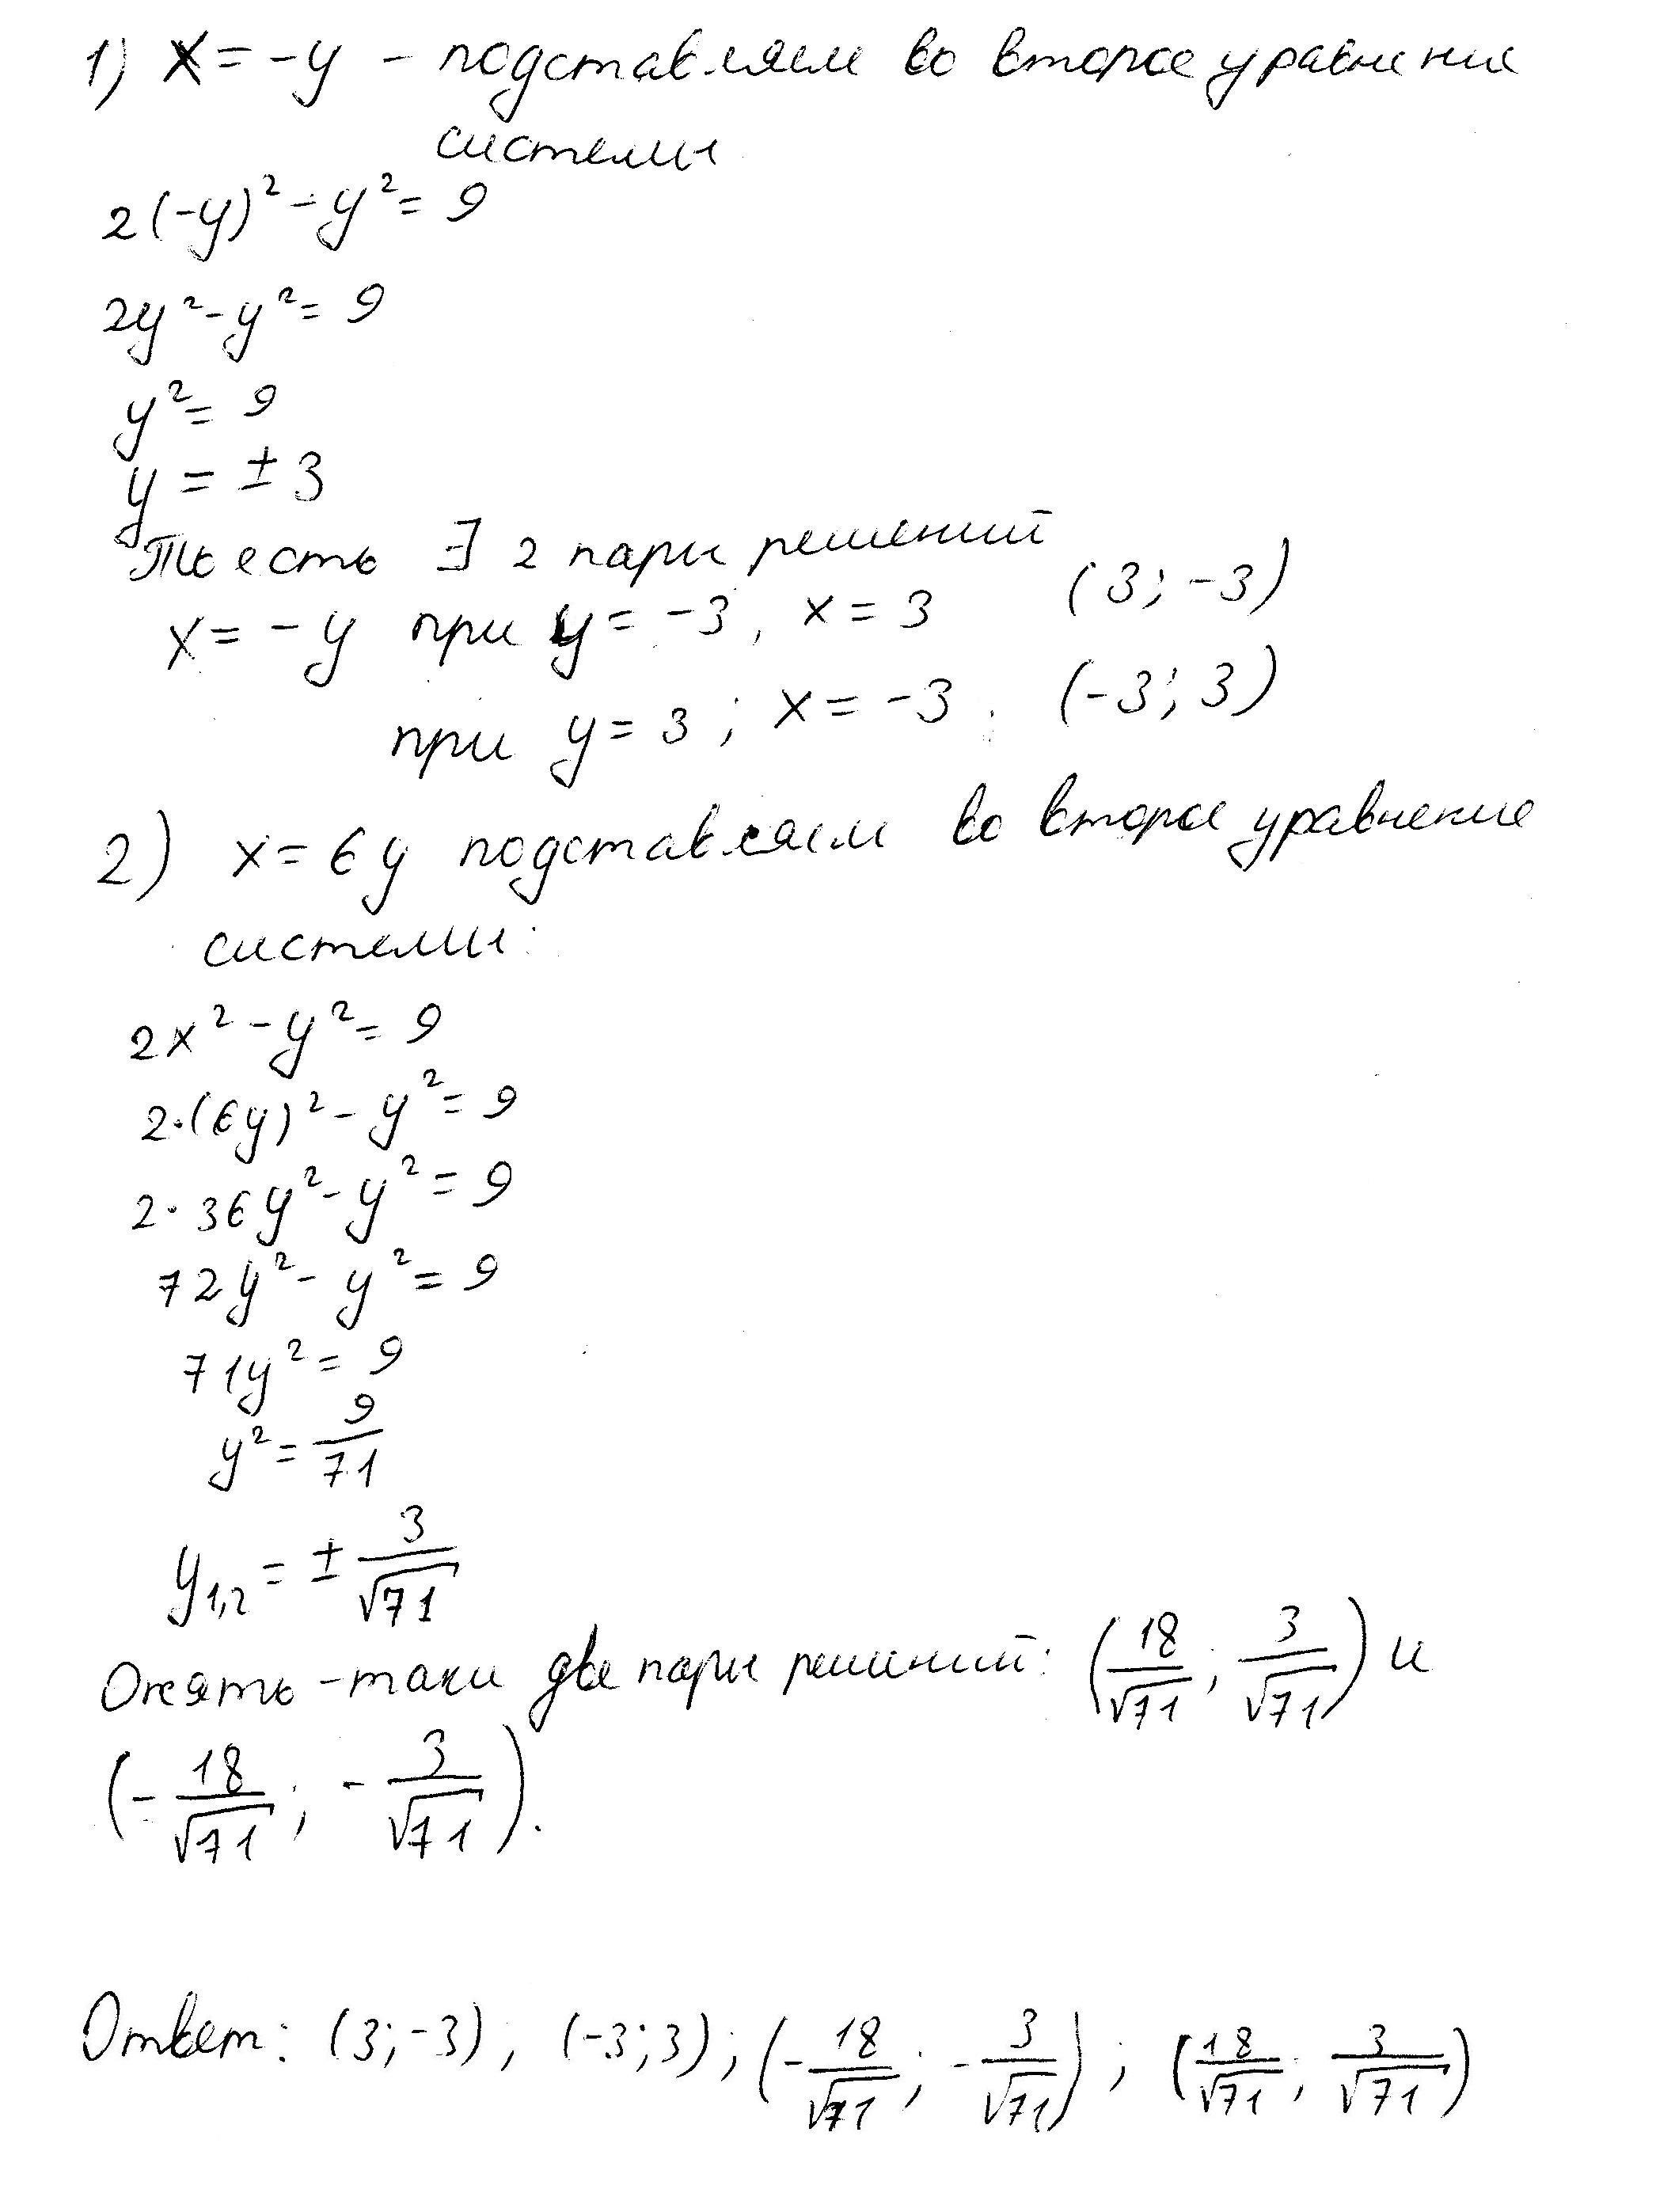 1) x = -y - подставляем во второе уравнение
системы
2(-y)² - y² = 9
2y² - y² = 9
y² = 9
y = ± 3
То есть ∃ 2 пары решений
x = -y при y = -3, x = 3 (3; -3)
при y = 3; x = -3. (-3; 3)
2) x = 6y подставляем во второе уравнение
системы:
2x² - y² = 9
2·(6y)² - y² = 9
2·36y² - y² = 9
72y² - y² = 9
71y² = 9
y² = 9/71
y₁,₂ = ± 3/√71
Опять-таки две пары решений: (18/√71; 3/√71) и
(-18/√71; -3/√71).
Ответ: (3;-3), (-3;3); (-18/√71; -3/√71); (18/√71; 3/√71)